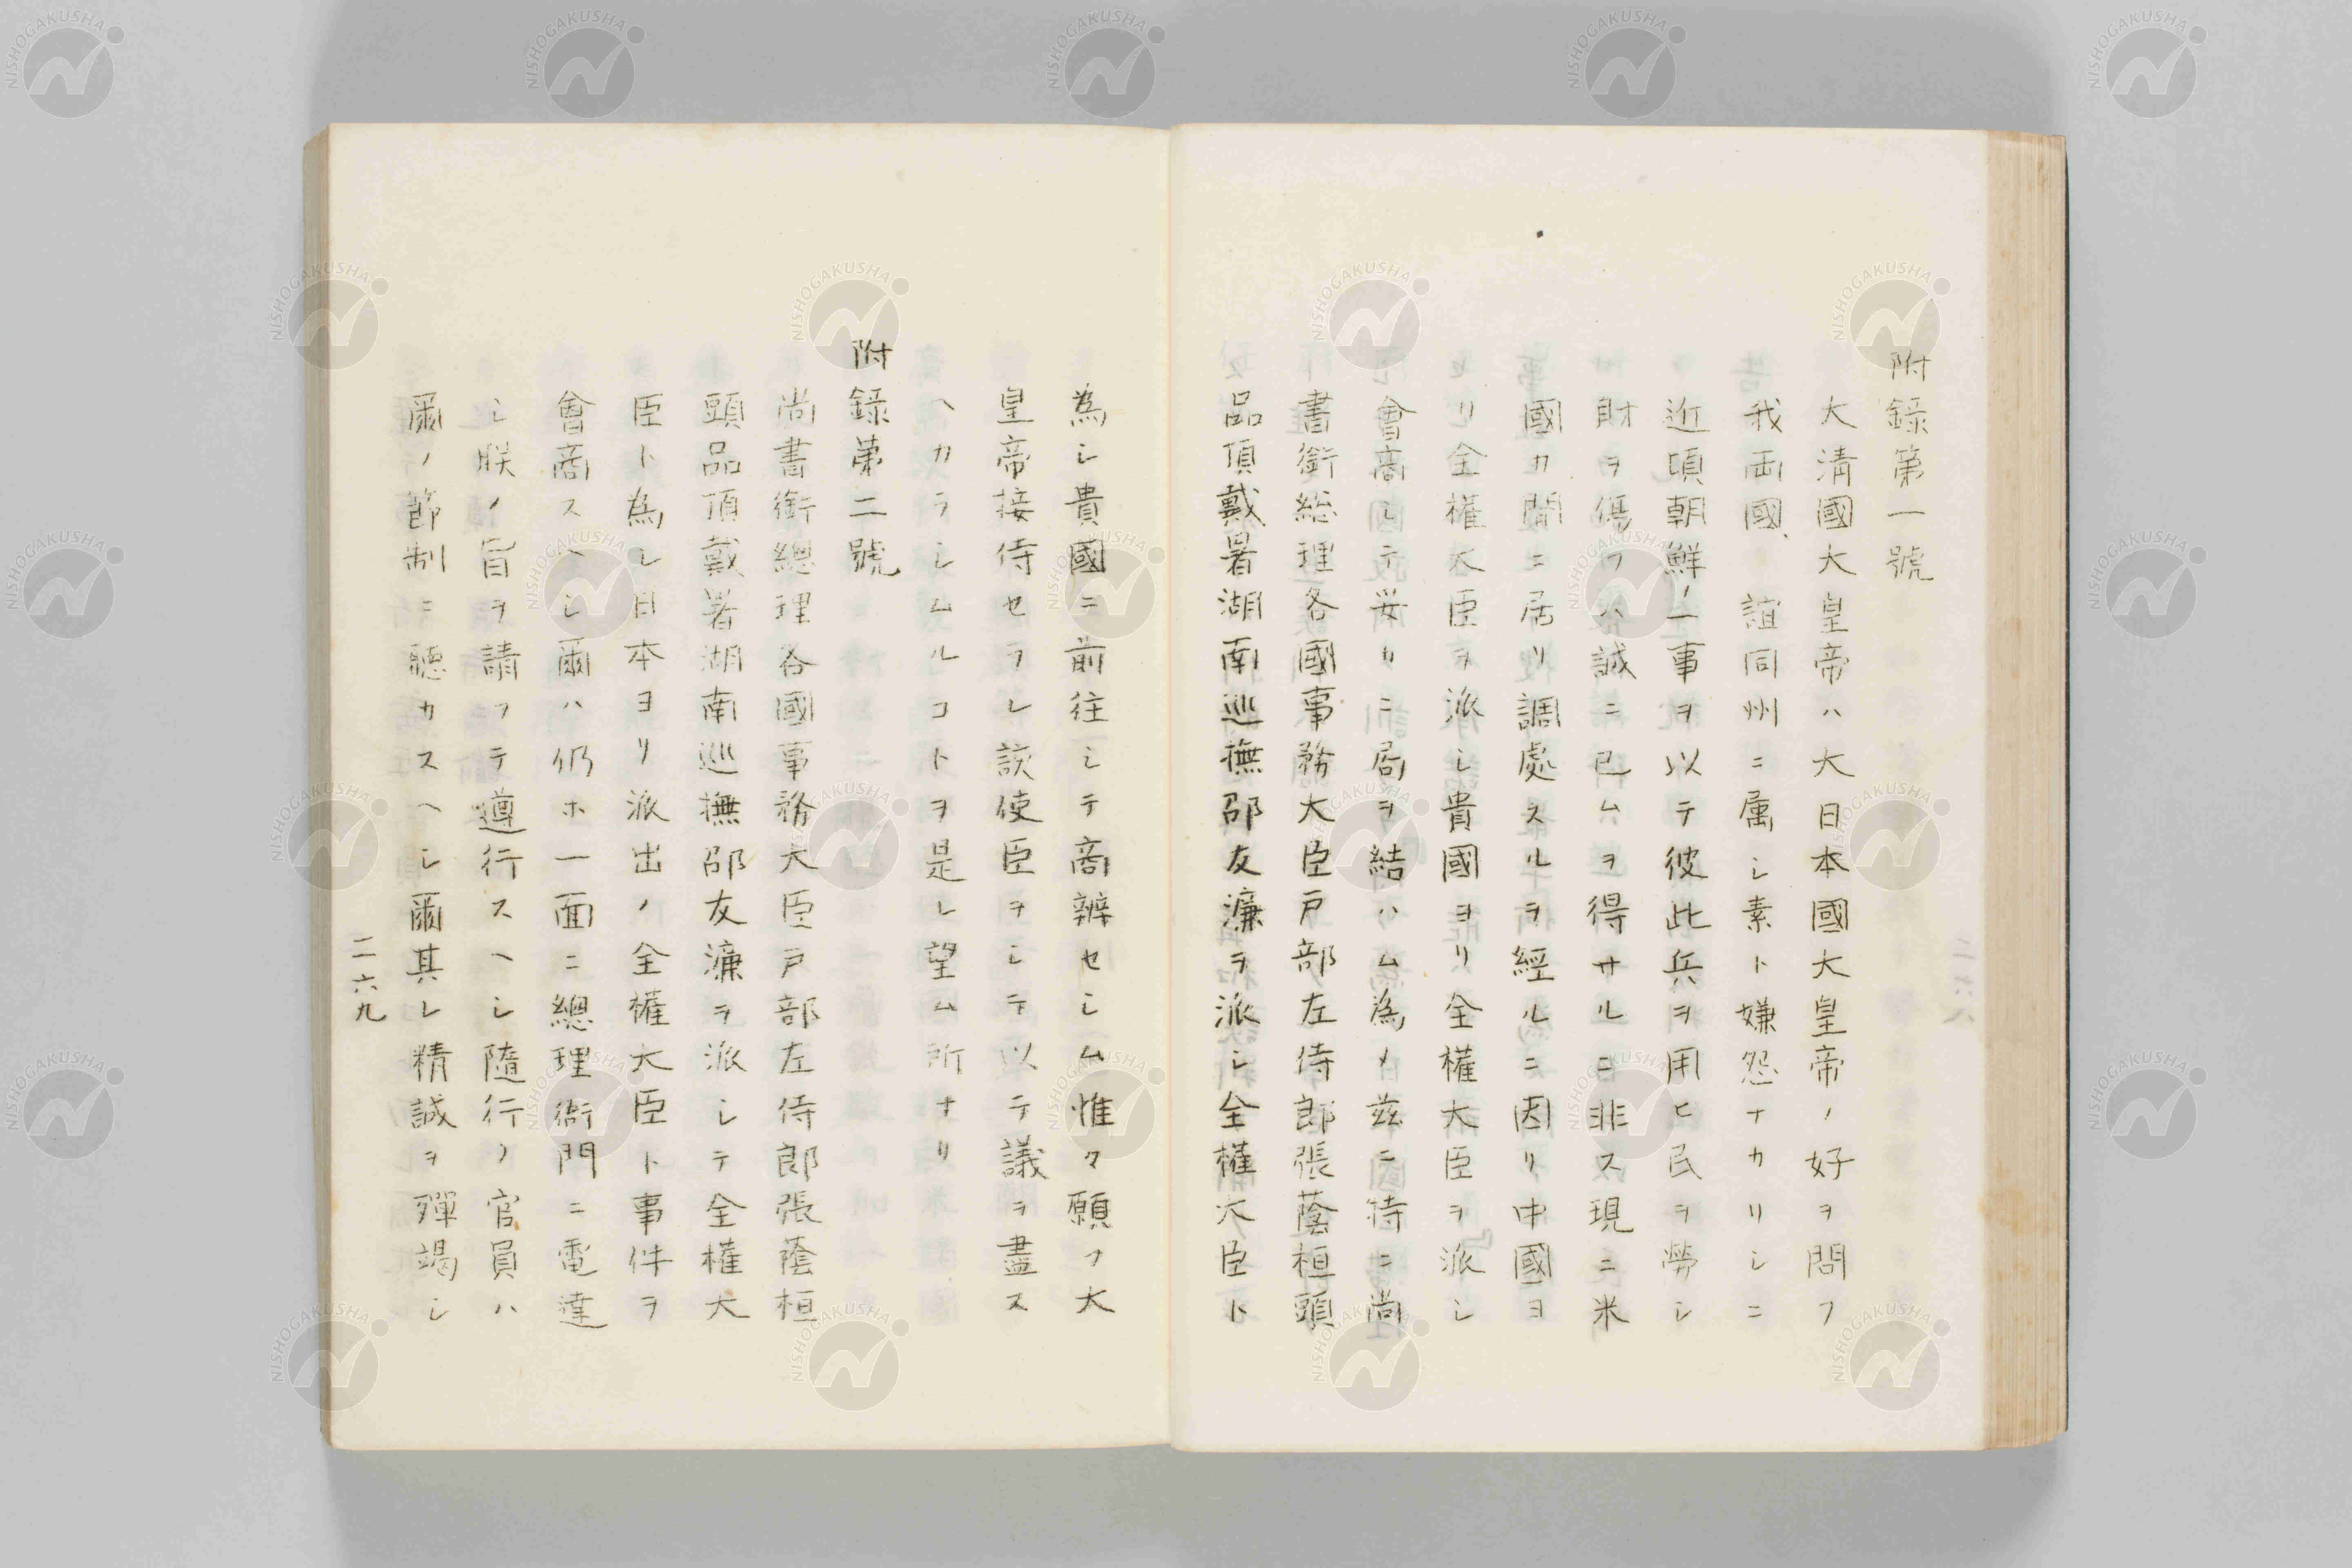 附錄第一號
大清國大皇帝ハ大日本國大皇帝ノ好ヲ問フ
我両國、誼同州ニ属シ素ト嫌怨ナカリシニ
近頃朝鮮ノ一事ヲ以テ彼此兵ヲ用ヒ民ヲ勞シ
財ヲ傷フハ誠ニ已ムヲ得サルニ非ス現ニ米
國カ間ニ居リ調處スルヲ經ルニ因リ中國ヨ
リ全權大臣ヲ派シ貴國ヨリ全權大臣ヲ派シ
會商シテ妥カニ局ヲ結ハム為メ茲ニ特ニ尚
書銜総理各國事務大臣戸部左侍郎張蔭桓頭
品頂戴署湖南巡撫邵友濂ヲ派シ全權大臣ト
為シ貴國ニ前往シテ商辨セシム惟々願フ大
皇帝接侍セラレ該使臣ヲシテ以テ議ヲ盡ス
ヘカラシムルコトヲ是レ望ム所ナリ
附錄第二號
尚書銜總理各國事務大臣戸部左侍郎張蔭桓
頭品頂戴署湖南巡撫邵友濂ヲ派シテ全權大
臣ト為シ日本ヨリ派出ノ全權大臣ト事件ヲ
會商スヘシ爾ハ仍ホ一面ニ總理衙門ニ電達
シ朕ノ旨ヲ請フテ遵行スヘシ隨行ノ官員ハ
爾ノ節制ニ聽カスヘシ爾其レ精誠ヲ殫竭シ
二六九
NISHOGAKUSHA